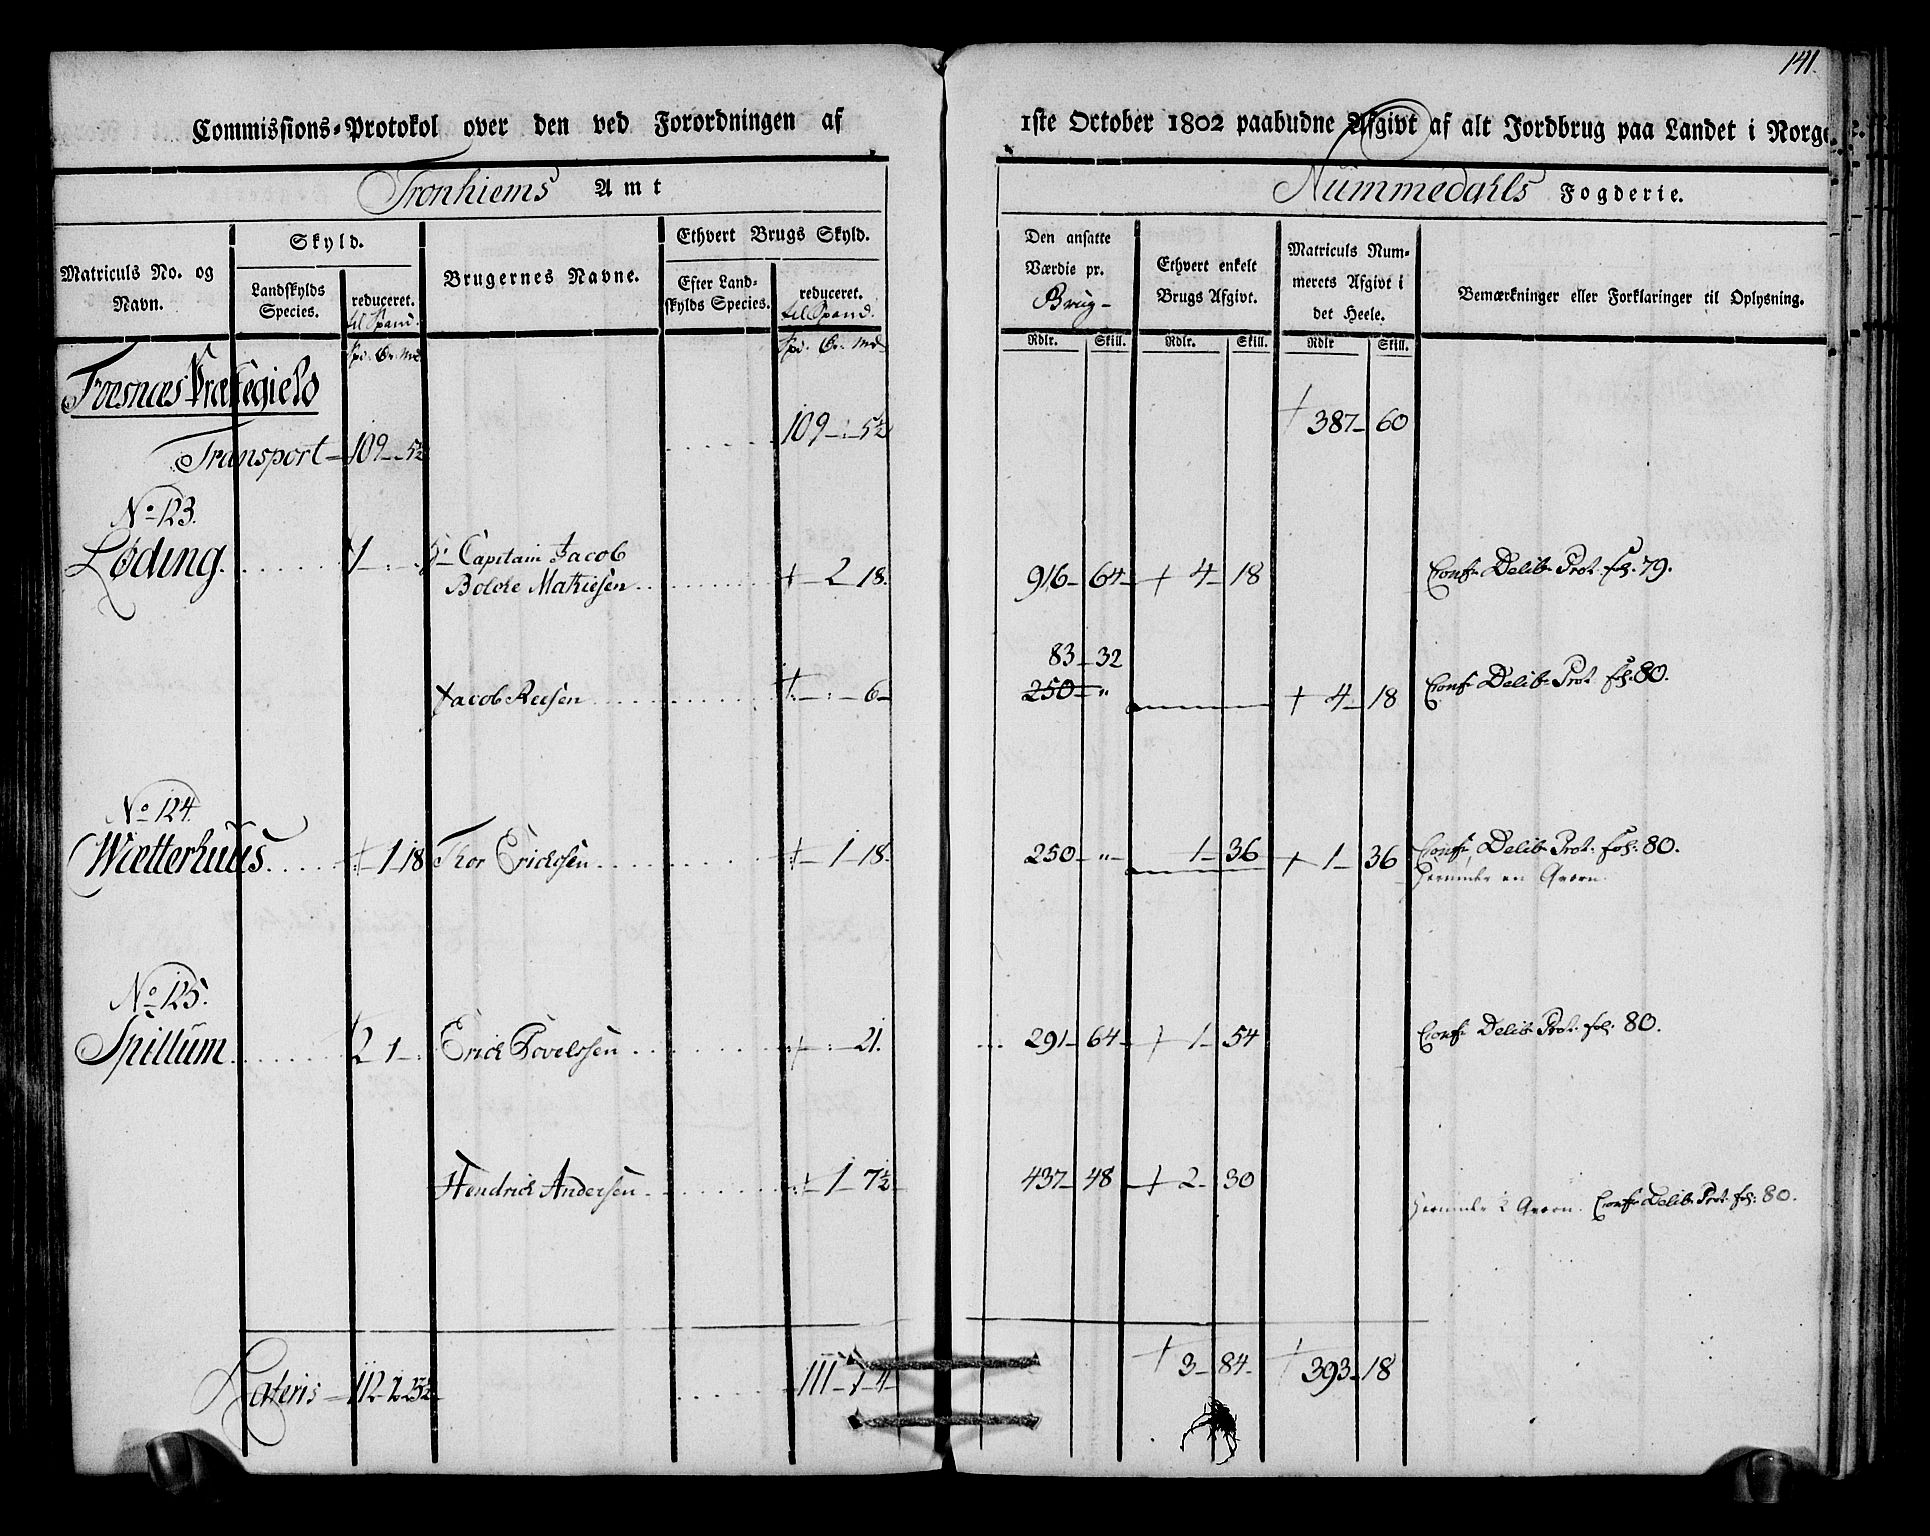 141.
Commissions-Protokol over den ved Forordningen af 1ste October 1802 paabudne Afgivt af alt Jordbrug paa Landet i Norge
Tronhiems Amt
Nummedahls Fogderie.
Matriculs No. og Navn.
Skyld.
Landskylds Species.
reduceret. til Spand.
Brugernes Navne.
Ethvert Brugs Skyld.
Efter Landskylds Species.
reduceret. til Spand.
Den ansatte Værdie pr. Brug
Ethvert enkelt Brugs Afgivt.
Matriculs Nummerets Afgivt i det Heele.
Bemærkninger eller Forklaringer til Oplysning.
Spd. Ør. Mk Spd. Ør. Mk Rdlr. Skill. Rdlr. Skill. Rdlr Skill.
Foesnæs Præstegield
Transport 109 - . - 5½ 109 - : - 5½ † 387 - 60
No 123.
Løding. 1 - : - Hr Capitain Jacob
Bolche Mathiesen + - 2 18. 916 - 64 - + 4 - 18 Conf. Delib. Prot. fol. 79.
83 - 32
Jacob Reesen + - : - 6 - 250 - " + 4 - 18 Conf. Delib. Prot. fol: 80.
No 124.
Wætterhuus + 1 - 18 Thor Erichsen + - 1 - 18. 250 - " - 1 - 36 + 1 - 36 Conf. Delib. Prot. fol: 80.
Herunder en Qværn.
No 125.
Spillum 2 - 1 - : Erich Povelssen + - : - 21. 291 - 64 - + 1 - 54 Conf. Delib. Prot. fol. 80.
Hendrich Andersen + - 1 - 7½ 437 - 48 - + 2 - 30 Herunder 2 Qværn. Conf. Delib. Prot. fol: 80.
Lateris 112 - 2 - 23½ 111 - 1 - 4 † 3 - 84 - † 393 - 18